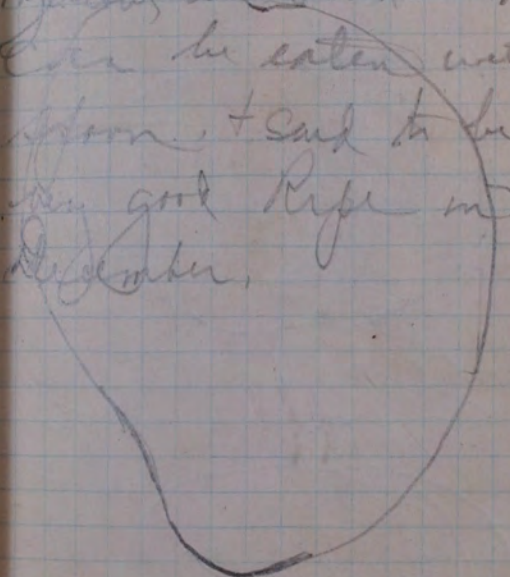 Can be eaten wi
spoon, + said to be
very good Ripe in
December.